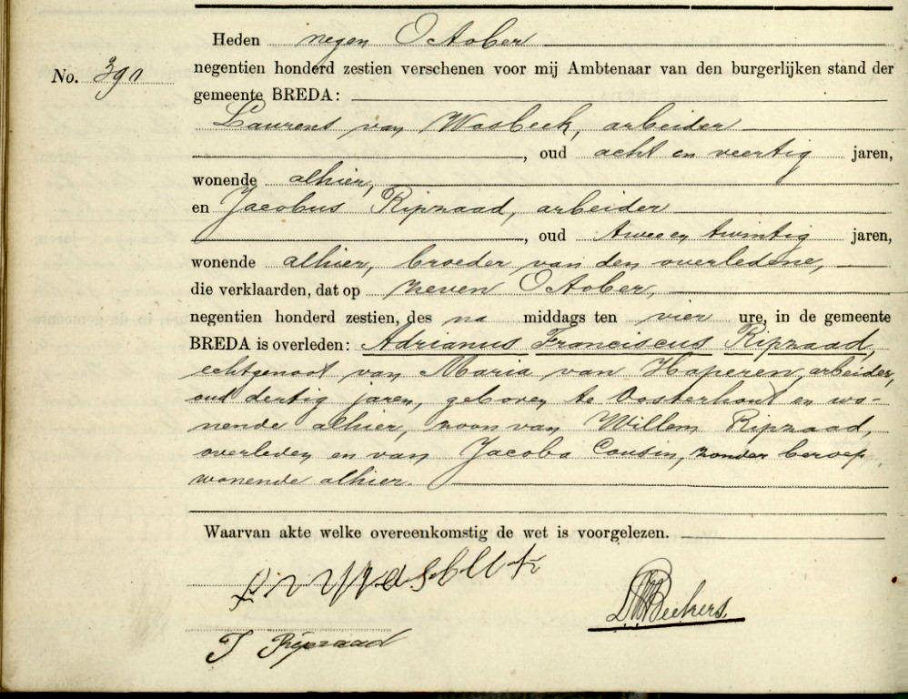 Heden negen October
No. 391 negentien honderd zestien verschenen voor mij Ambtenaar van den burgerlijken stand der
gemeente BREDA:
Laurens van Wosbeek, arbeider
, oud acht en veertig jaren,
wonende alhier,
en Jacobus Ripzaad, arbeider
, oud twee en twintig jaren,
wonende alhier, broeder van den overledene,
die verklaarden, dat op zeven October,
negentien honderd zestien, des na middags ten vier ure, in de gemeente
BREDA is overleden: Adrianus Franciscus Ripzaad,
echtgenoot van Maria van Haperen, arbeider,
oud dertig jaren, geboren te Oosterhout en wo-
nende alhier, zoon van Willem Ripzaad,
overleden en van Jacoba Cousin, zonder beroep,
wonende alhier.
Waarvan akte welke overeenkomstig de wet is voorgelezen.
Beekers
J Ripzaad